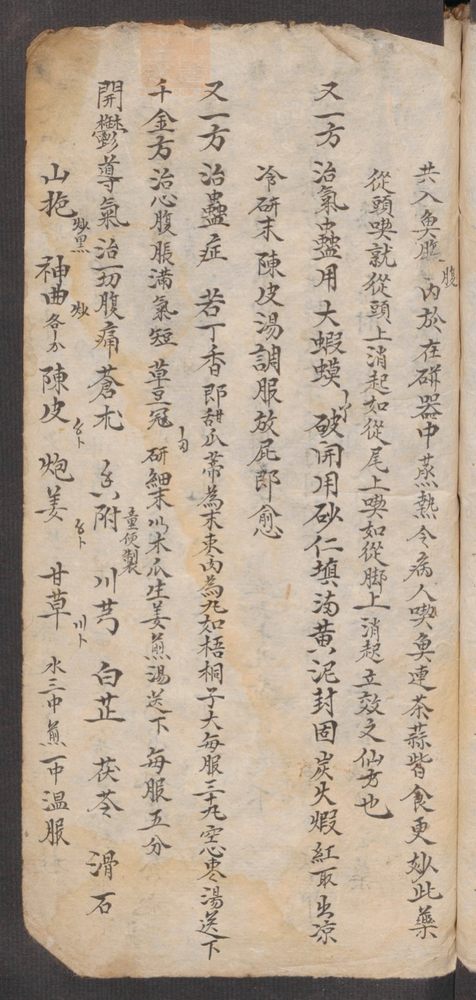 共入魚腹內於在磁器中蒸熱令病人喫魚連茶蒜皆食更妙此藥
從頭喫就從頭上消起如從尾上喫如從脚上消起立效之仙方也
又一方 治氣蠱用大蝦蟆 破開用砂仁填滿黃泥封固炭火煅紅取出凉
冷研末陳皮湯調服放屁即愈
又一方 治蠱症 若丁香 即甜瓜蒂為末枣肉為丸如梧桐子大每服三十丸空心枣湯送下
千金方治心腹脹滿氣短 草豆冦 研細末以木瓜生姜煎湯送下 每服五分
開鬱導氣治一切腹痛 蒼朮 香附 童便製 川芎 白芷 茯苓 滑石
山梔 炒黑 神曲 炒 各 陳皮 炮姜 甘草 水三中煎一中温服